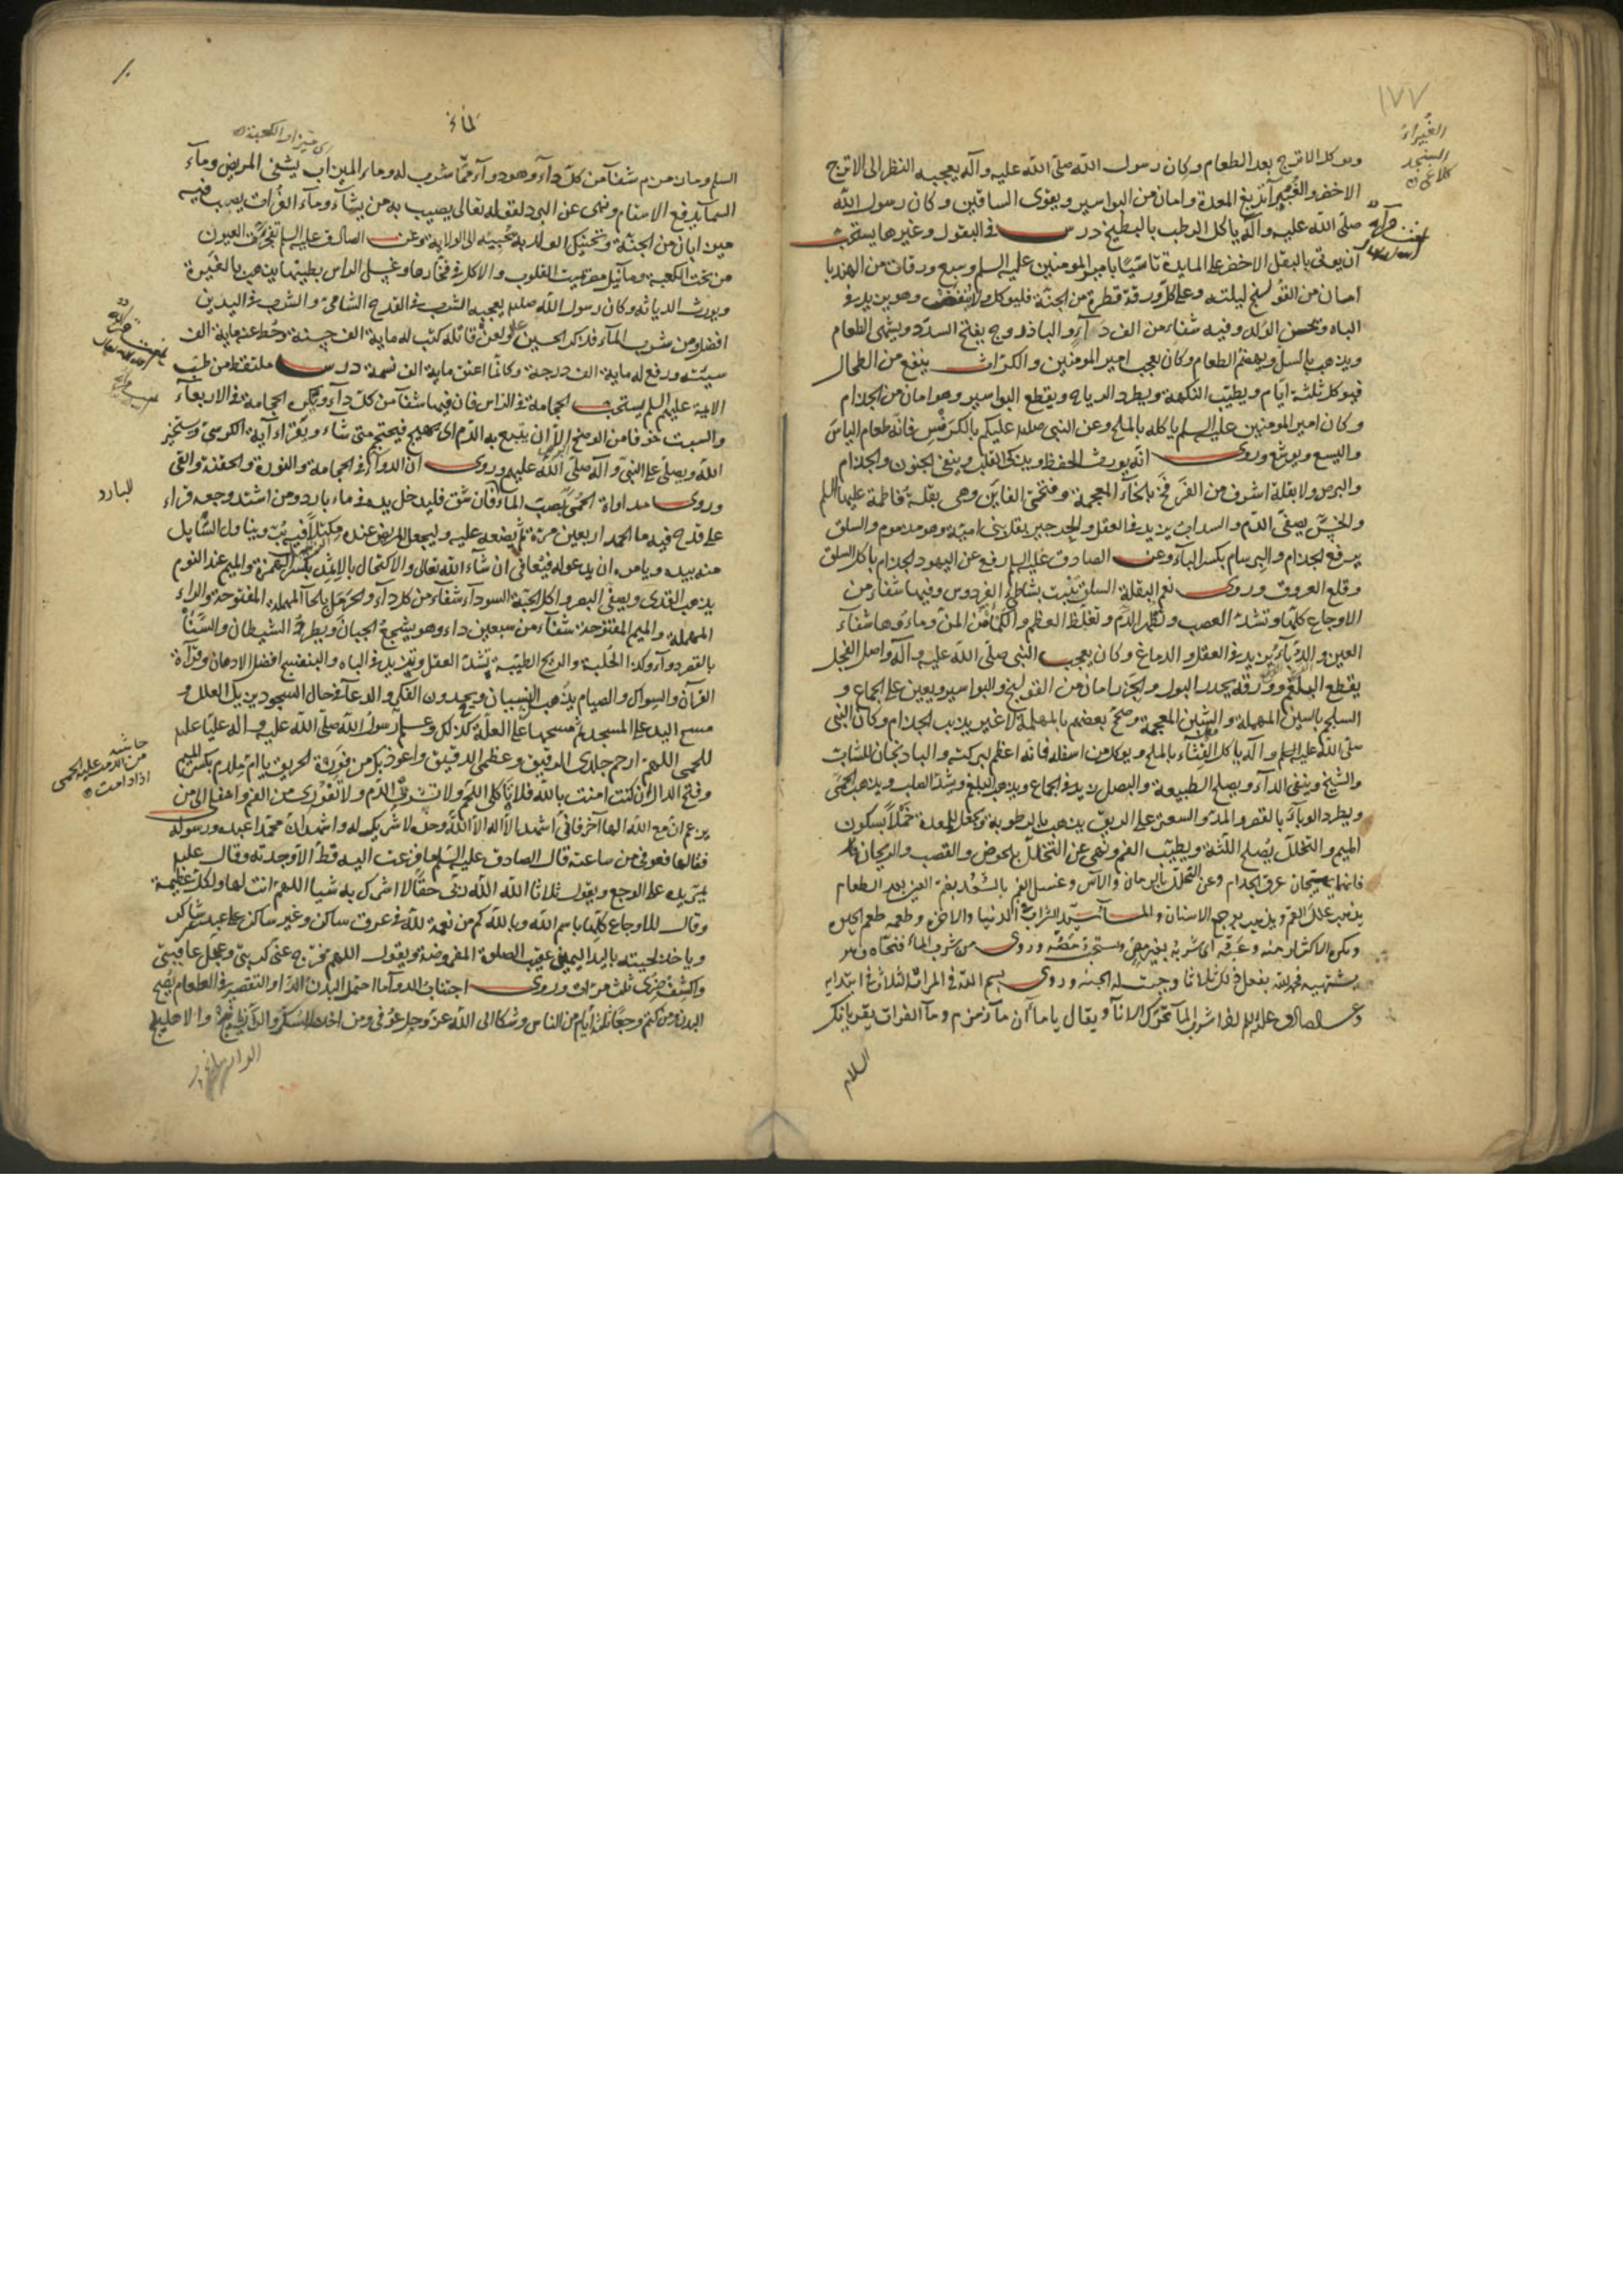 ١٧٧
الغبيراء
السنجد
ويوكل الاترج بعد الطعام وكان رسول الله صلى الله عليه وآله يعجبه النظر الى الاترج
الاخضر والغبيراء يدبغ المعدة وامان من البواسير ويقوى الساقين وكان رسول الله
صلى الله عليه وآله ياكل الرطب بالبطيخ درس فى البقول وغيرها يستحب
ان يوتى بالبقل الاخضر على المايدة تاسيا بامير المومنين عليه السلم وسبع ورقات من الهندبا
امان من القولنج ليلته وعلى كل ورقة قطرة من الجنة فليوكل ولا ينفض وهو يزيد فى
الباه ويحسن الولد وفيه شفاء من الف داء والباذروج يفتح السدد ويشهى الطعام
ويذهب بالسل ويهضم الطعام وكان يعجب امير المومنين والكراث ينفع من الطحال
فيوكل ثلثة ايام ويطيب النكهة ويطرد الرياح ويقطع البواسير وهو امان من الجذام
وكان امير المومنين عليه السلم ياكله بالملح وعن النبى صلعم عليكم بالكرفس فانه طعام الياس
واليسع ويوشع وروى انه يورث الحفظ ويذكى القلب وينفى الجنون والجذام
والبرص ولا بقلة اشرف من الفرفخ بالخاء المعجمة وفتحتى الفاين وهى بقلة فاطمة عليها السلم
والخس يصفى الدم والسداب يزيد فى العقل والجرجير بقل بنى امية وهو مذموم والسلق
يدفع الجذام والبرسام بكسر الباء وعن الصادق عليه السلم رفع عن اليهود الجذام باكل السلق
وقلع العروق وروى نعم البقلة السلق تنبت بشاطئ الفردوس وفيها شفاء من
الاوجاع كلها وتشد العصب وتظهر الدم وتغلظ العظم والكماة من المن وماءوها شفاء
العين والدباء يزيد فى العقل والدماغ وكان يعجب النبى صلى الله عليه وآله واصل الفجل
يقطع البلغم وورقه يحدر البول والجزر امان من القولنج والبواسير ويعين على الجماع و
السلجم بالسين المهملة والشين المعجمة وصحح بعضهم بالمهملة لا غير يذيب الجذام وكان النبى
صلى الله عليه وآله ياكل القثاء بالملح ويوكل من اسفله فانه اعظم لبركته والباذنجان للشاب
والشيخ وينفى الداء ويصلح الطبيعة والبصل يزيد فى الجماع ويذهب البلغم ويشد الصلب ويذهب الحمى
ويطرد الوباء بالقصر والمد والسعتر على الريق يذهب بالرطوبة ويجعل للمعدة خملا بسكون
الميم والتخلل يصلح اللثة ويطيب الفم ونهى عن التخلل بالخوص والقصب والريحان
فانهما يهيجان عرق الجذام وعن التخلل بالرمان والآس وغسل الفم بالسعد بضم السين بعد الطعام
يذهب علل الفم ويذهب بوجع الاسنان والماء سيد الشراب فى الدنيا والاخرة وطعمه طعم الحيوة
ويكره الاكثار منه وعبه اى شربه بغير مص ويستحب مصه وروى من شرب الماء فنحاه وهو
يشتهيه فحمد الله يفعل ذلك ثلاثا وجبت له الجنة وروى بسم الله فى المرات الثلاث فى ابتدايه
وعن الصادق عليه السلم اذا شرب الماء تحرك الاناء ويقال يا ماء ان ماء زمزم وماء الفرات يقريانك
السلام
١٠
لماء
اى ميزاب الكعبة
السلم وماء زمزم شفاء من كل داء وهو دواء مما شرب له وماء الميزاب يشفى المريض وماء
السماء يدفع الاسقام ونهى عن البرد لقوله تعالى يصيب به من يشاء وماء الفرات يصب فيه
ميزابان من الجنة وتحنيك الولد به يحببه الى الولاية وعن الصادق عليه السلم تفجرت العيون
من تحت الكعبة وماء نيل مصر يميت القلوب والاكل فى فخارها وغسل الراس بطينها يذهب بالغيرة
ويورث الدياثة وكان رسول الله صلعم يعجبه الشرب فى القدح الشامى والشرب فى اليدين
افضل ومن شرب الماء فذكر الحسين ولعن قاتله كتب له ماية الف حسنة وحط عنه ماية الف
سيئة ورفع له ماية الف درجة وكانما اعتق ماية الف نسمة درس ملتقط من طب
الايمة عليهم السلم يستحب الحجامة فى الراس فان فيها شفاء من كل داء ويكره الحجامة فى الاربعاء
والسبت خوفا من الوضح الا ان يتبيغ به الدم اى يهيج فيحتجم متى شاء ويقراء آية الكرسى ويستخير
الله ويصلى على النبى وآله صلى الله عليهم وروى ان الدواء فى الحجامة والنورة والحقنة والقى
وروى مداواة الحمى بصب الماء فان شق فليدخل يده فى ماء بارد ومن اشتد وجعه قراء
للبارد
على قدح فيه ماء الحمد اربعين مرة ثم يضعه عليه وليجعل المريض عنده مكتلا فيه بر ويناول السايل
منه بيده ويامره ان يدعو له فيعافى ان شاء الله تعالى والاكتحال بالاثمد بكسر الهمزة والميم عند النوم
يذهب القذى ويصفى البصر واكل الحبة السوداء شفاء من كل داء والحرمل بالحاء المهملة المفتوحة والراء
المهملة والميم المفتوحة شفاء من سبعين داء وهو يشجع الجبان ويطرد الشيطان والسنا
بالقصر دواء وكذا الحلبة والريح الطيبة تشد العقل وتزيد فى الباه والبنفسج افضل الادهان وقراءة
القرآن والسواك والصيام يذهب النسيان ويحددن الفكر والدعاء فى حال السجود يزيل العلل و
مسح اليد على المسجد ثم مسحها على العلة كذلك وعلم رسول الله صلى الله عليه وآله عليا عليه
للحمى اللهم ارحم جلدى الدقيق وعظمى الدقيق واعوذ بك من فورة الحريق يا ام ملدم بكسر الميم
وفتح الدال ان كنت امنت بالله فلا تاكلى اللحم ولا تشربى الدم ولا تفورى من الفم وانتقلى الى من
يزعم ان مع الله الها آخر فانى اشهد ان لا اله الا الله وحده لا شريك له واشهد ان محمدا عبده ورسوله
فقالها فعوفى من ساعته قال الصادق عليه السلم ما فزعت اليه قط الا وجدته وقال عليه
يمر يده على الوجع ويقول ثلاثا الله الله ربى حقا لا اشرك به شيا اللهم انت لها ولكل عظيمة
وقال للاوجاع كلها باسم الله وبالله كم من نعمة لله فى عرق ساكن وغير ساكن على عبد شاكر
وياخذ لحيته باليد اليمنى عقيب الصلوة المفروضة ويقول اللهم فرج عنى كربتى وعجل عافيتى
واكشف ضرى ثلث مرات وروى اجتناب الدواء ما احتمل البدن الداء والتقصير فى الطعام يصح
البدن ومن كتم وجعا ثلثة ايام من الناس وشكا الى الله عز وجل عوفى ومن اخذ السكر والاهليلج